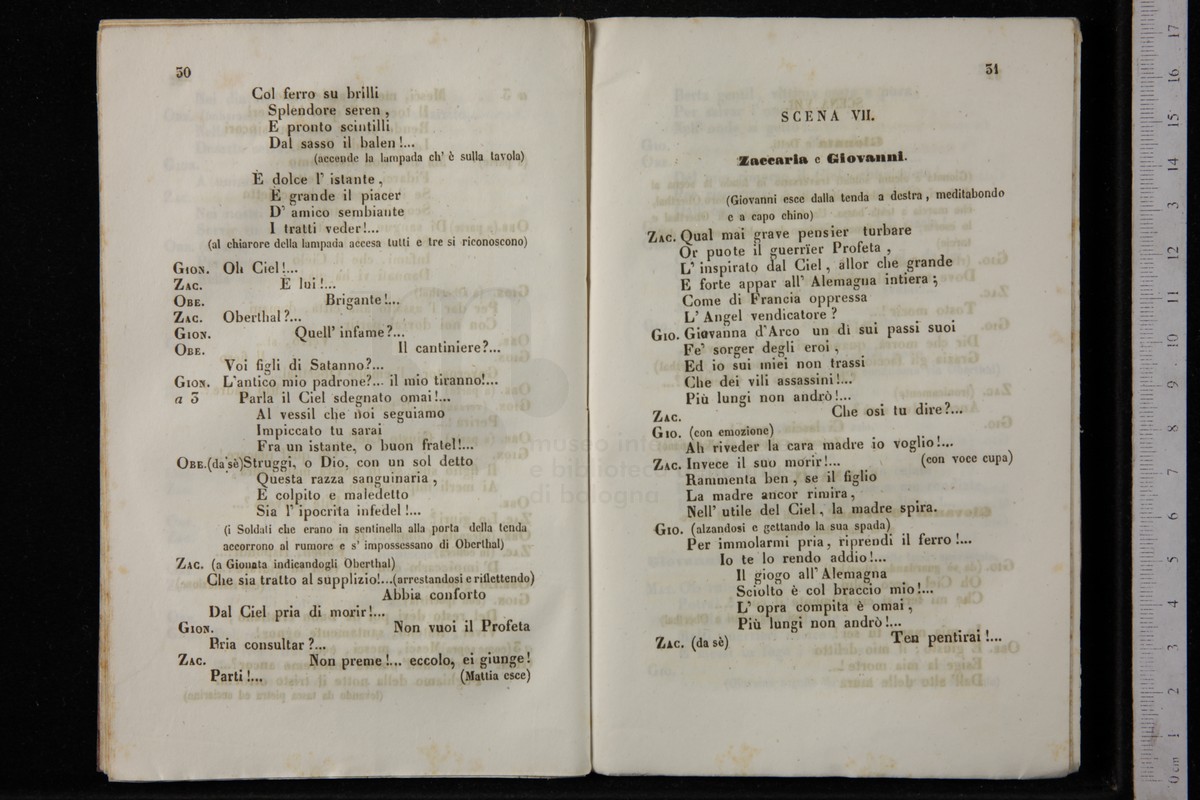 30
Col ferro su brilli
Splendore seren ,
E pronto scintilli
Dal sasso il balen !...
(accende la lampada ch' è sulla tavola)
È dolce l' istante ,
È grande il piacer
D' amico sembiante
I tratti veder!...
(al chiarore della lampada accesa tutti e tre si riconoscono)
GION. Oh Ciel!...
ZAC. È lui !...
OBE. Brigante !...
ZAC. Oberthal ?...
GION. Quell' infame ?...
OBE. Il cantiniere?...
Voi figli di Satanno?...
GION. L'antico mio padrone?... il mio tiranno!...
a 3 Parla il Ciel sdegnato omai!...
Al vessil che noi seguiamo
Impiccato tu sarai
Fra un istante, o buon fratel!...
OBE.(da sè)Struggi, o Dio, con un sol detto
Questa razza sanguinaria ,
E colpito e maledetto
Sia l' ipocrita infedel !...
(i Soldati che erano in sentinella alla porta della tenda
accorrono al rumore e s' impossessano di Oberthal)
ZAC. (a Gionata indicandogli Oberthal)
Che sia tratto al supplizio!...(arrestandosi e riflettendo)
Abbia conforto
Dal Ciel pria di morir!...
GION. Non vuoi il Profeta
Pria consultar ?...
ZAC. Non preme !... eccolo, ei giunge!
Parti !... (Mattia esce)
31
SCENA VII.
Zaccaria e Giovanni.
(Giovanni esce dalla tenda a destra , meditabondo
e a capo chino)
ZAC. Qual mai grave pensier turbare
Or puote il guerrier Profeta ,
L' inspirato dal Ciel , allor che grande
E forte appar all' Alemagna intiera ;
Come di Francia oppressa
L' Angel vendicatore ?
GIO. Giovanna d'Arco un dì sui passi suoi
Fe' sorger degli eroi ,
Ed io sui miei non trassi
Che dei vili assassini!...
Più lungi non andrò!...
ZAC. Che osi tu dire?...
GIO. (con emozione)
Ah riveder la cara madre io voglio!...
ZAC. Invece il suo morir!... (con voce cupa)
Rammenta ben , se il figlio
La madre ancor rimira ,
Nell' utile del Ciel , la madre spira.
GIO. (alzandosi e gettando la sua spada)
Per immolarmi pria, riprendi il ferro !...
Io te lo rendo addio!...
Il giogo all' Alemagna
Sciolto è col braccio mio!...
L' opra compita è omai ,
Più lungi non andrò !...
ZAC. (da sè) Ten pentirai !...